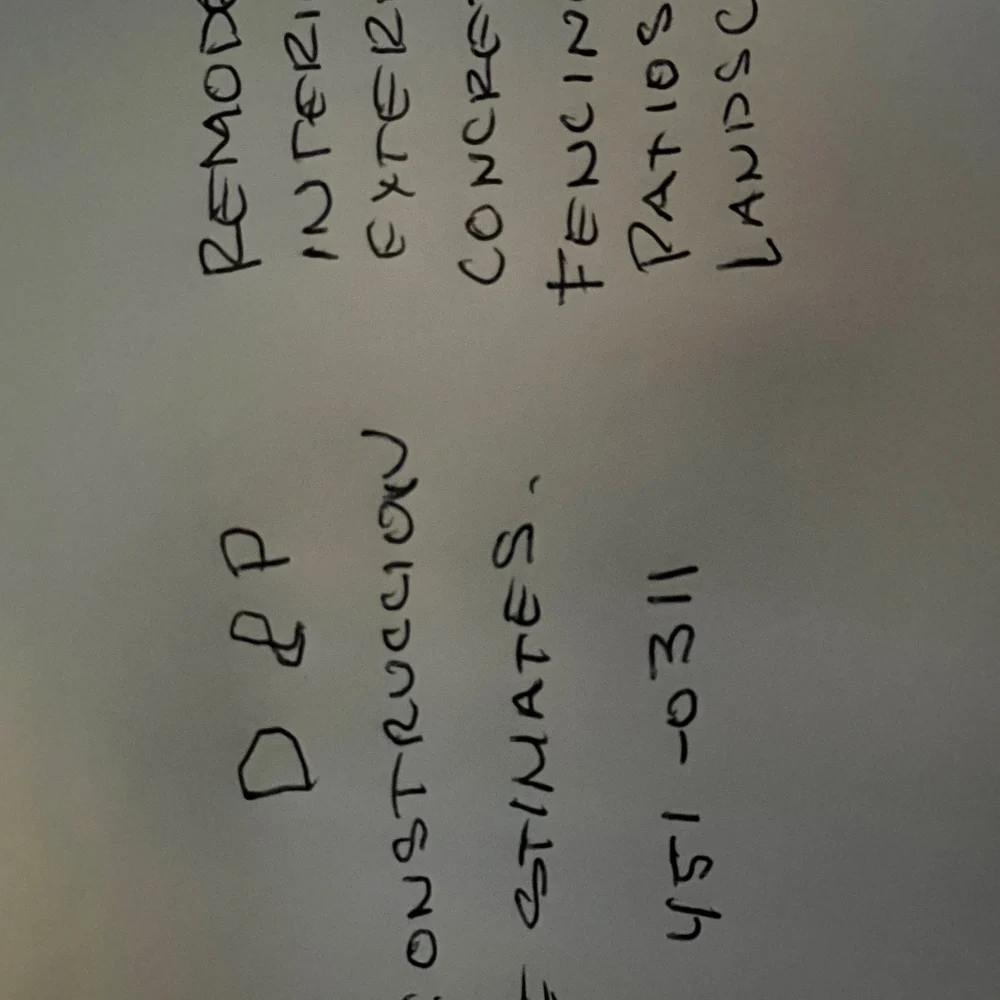 D & P
CONSTRUCCION
ESTIMATES.
451-0311
REMODE
INTERI
EXTER
CONCRE
FENCIN
PATIOS
LANDSC